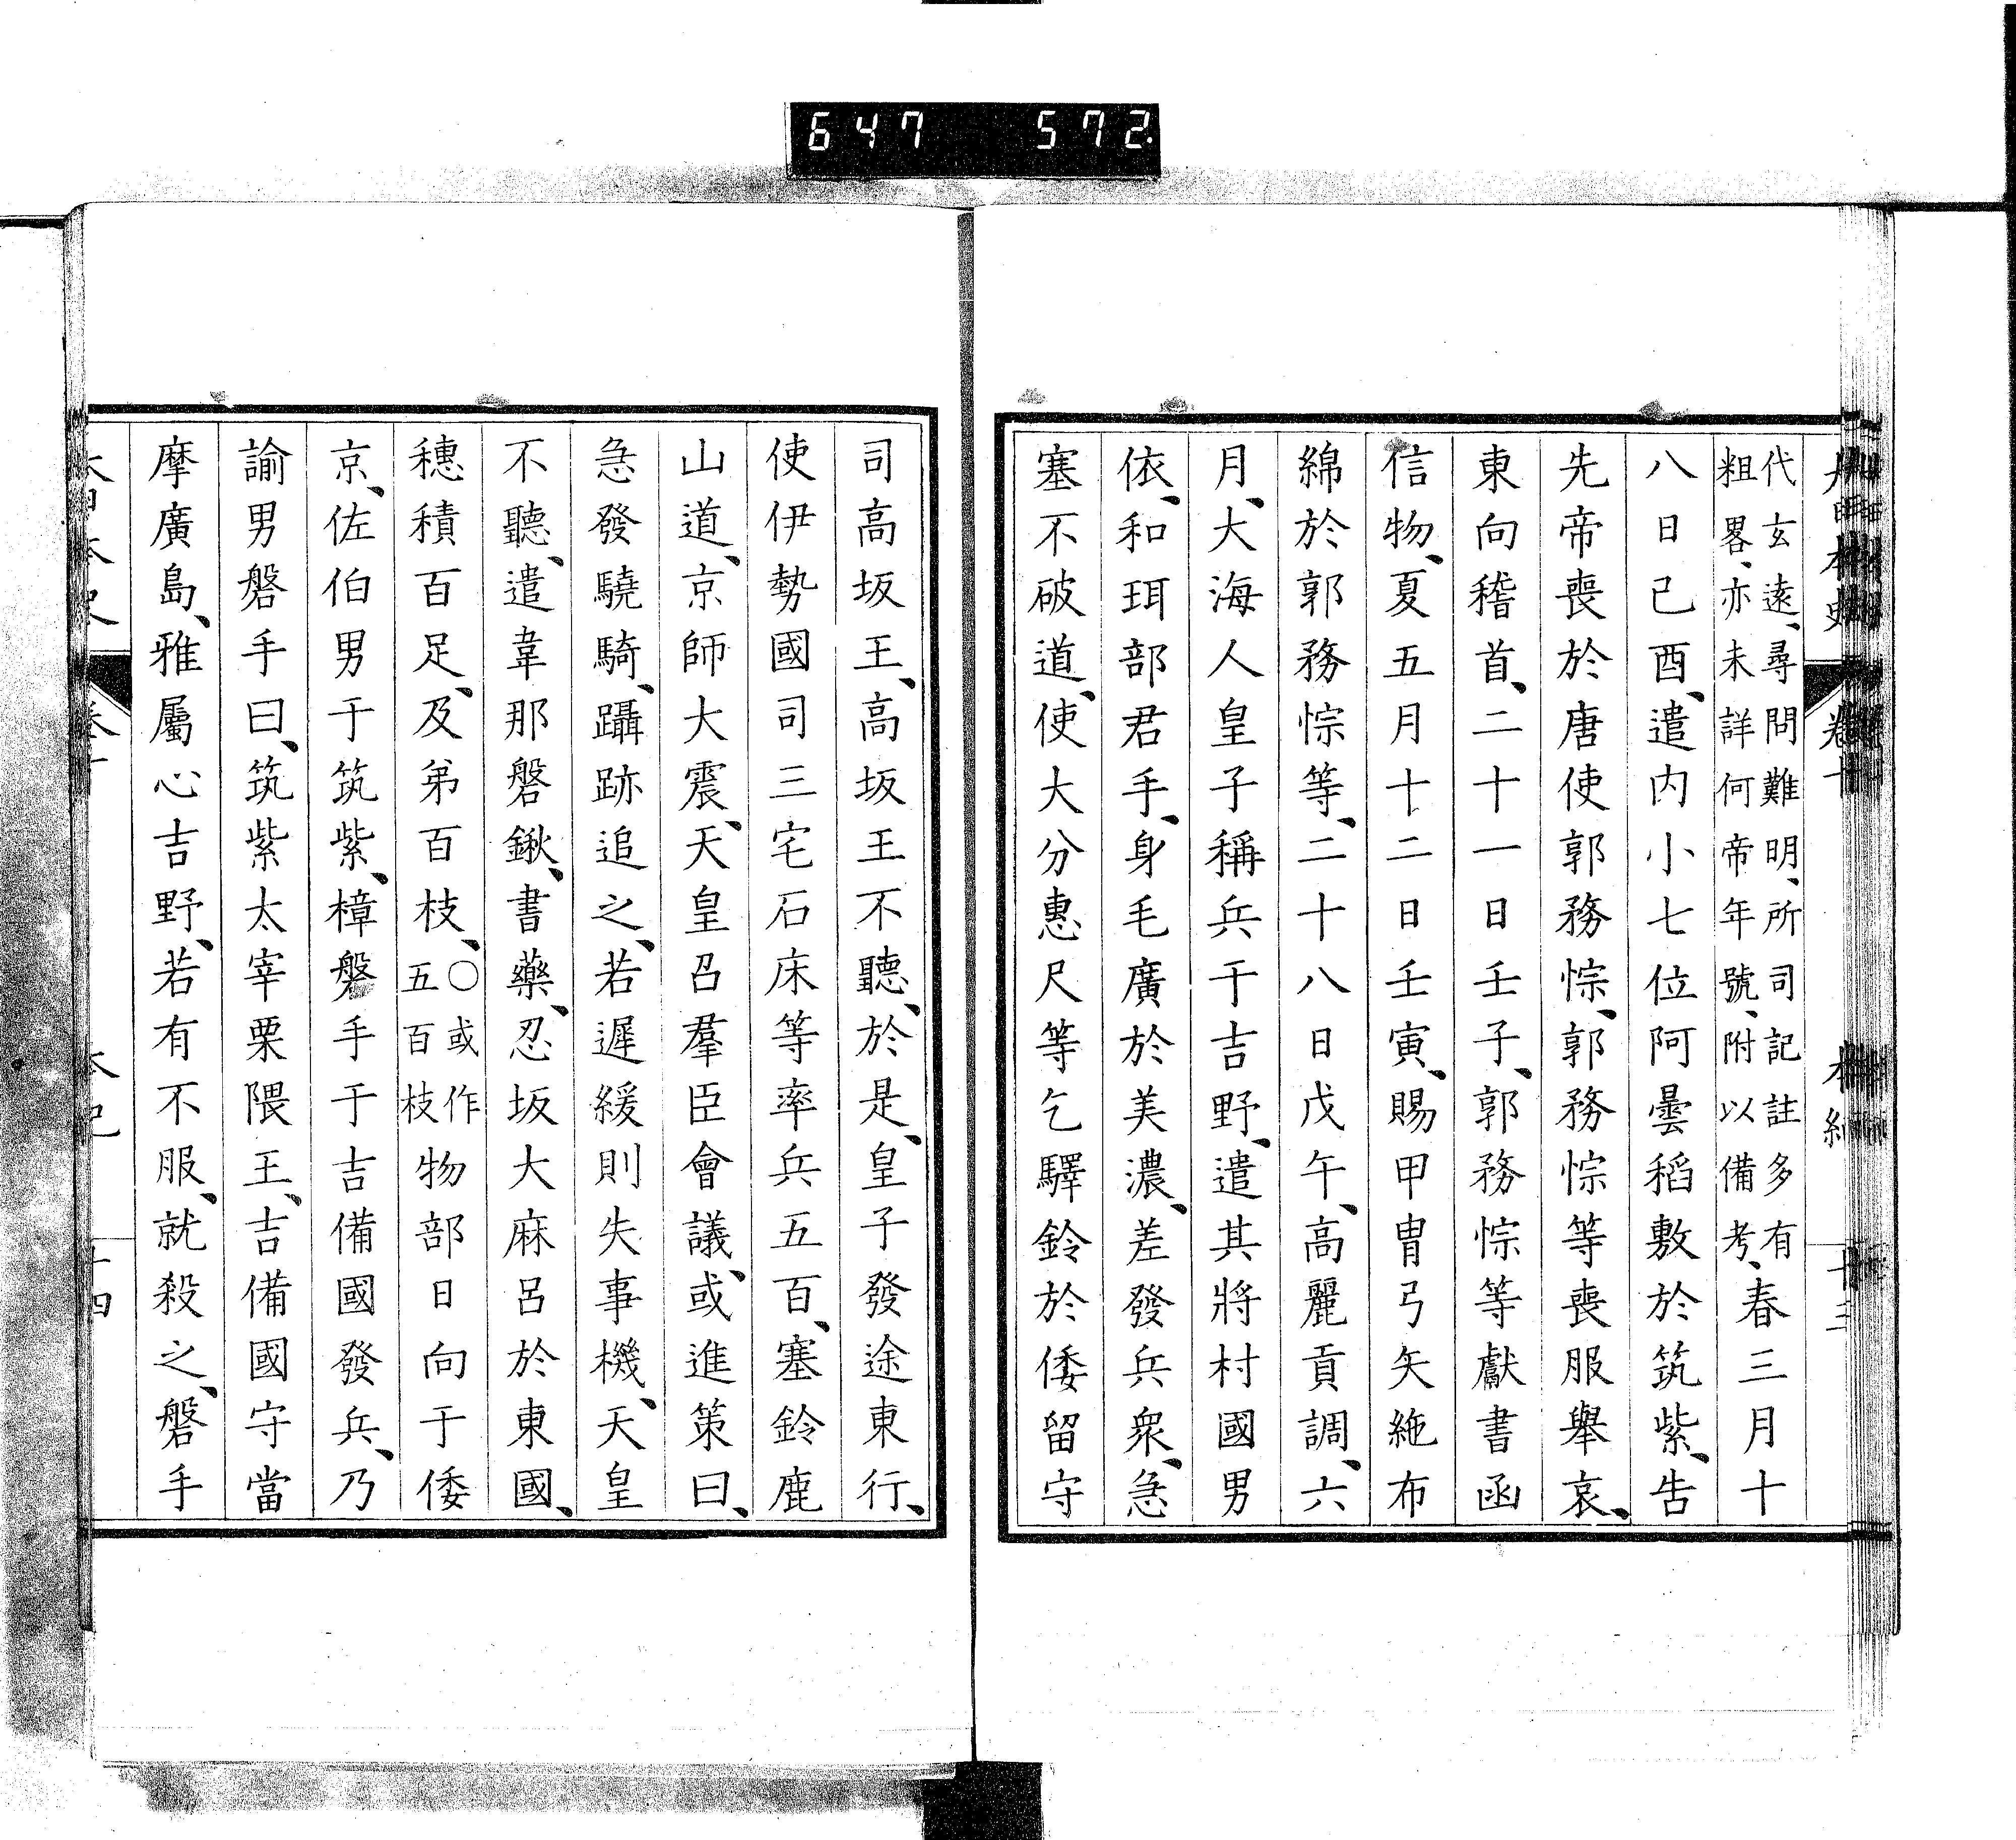 647 572.
大日本史 卷十 本紀 十三
代玄遠、尋問難明、所司記註多有
粗畧、亦未詳何帝年號、附以備考、春三月十
八日己酉、遣内小七位阿曇稻敷於筑紫、告
先帝喪於唐使郭務悰、郭務悰等喪服舉哀、
東向稽首、二十一日壬子、郭務悰等獻書函
信物、夏五月十二日壬寅、賜甲冑弓矢絁布
綿於郭務悰等、二十八日戊午、高麗貢調、六
月、大海人皇子稱兵于吉野、遣其將村國男
依、和珥部君手、身毛廣於美濃、差發兵衆、急
塞不破道、使大分惠尺等乞驛鈴於倭留守
司高坂王、高坂王不聽、於是、皇子發途東行、
使伊勢國司三宅石床等率兵五百、塞鈴鹿
山道、京師大震、天皇召羣臣會議、或進策曰、
急發驍騎、躡跡追之、若遲緩則失事機、天皇
不聽、遣韋那磐鍬、書藥、忍坂大麻呂於東國、
穗積百足、及弟百枝、〇或作五百枝物部日向于倭
京、佐伯男于筑紫、樟磐手于吉備國發兵、乃
諭男磐手曰、筑紫太宰栗隈王、吉備國守當
摩廣島、雅屬心吉野、若有不服、就殺之、磐手